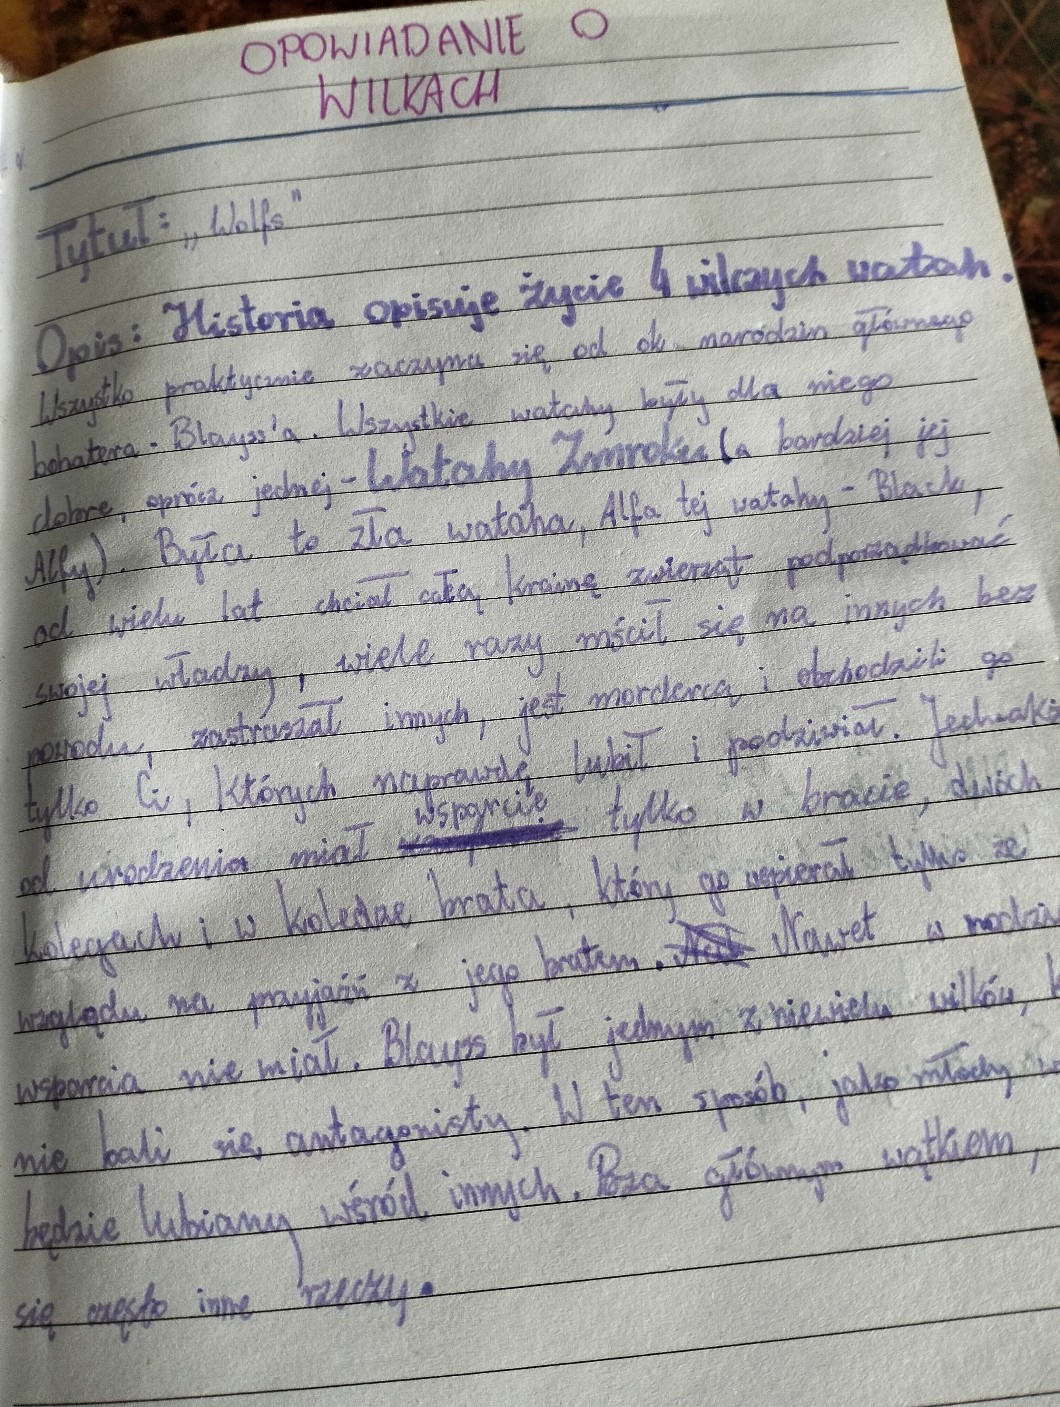 OPOWIADANIE O
WILKACH
Tytuł: „Wolfs"
Opis: Historia opisuje życie 4 wilczych watah.
Wszystko praktycznie zaczyna się od ok. narodzin głównego
bohatera - Blayss'a. Wszystkie watahy były dla niego
dobre, oprócz jednej - Watahy Zmroku (a bardziej jej
Alfy). Była to zła wataha, Alfa tej watahy - Black,
od wielu lat chciał całą krainę zwierząt podporządkować
swojej władzy, wiele razy mścił się na innych bez
powodu, zastraszał innych, jest mordercą i obchodzili go
tylko Ci, których naprawdę lubił i podziwiał. Jednak
od urodzenia miał wsparcie tylko w bracie, dwóch
kolegach i w koledze brata, który go wspierał tylko ze
względu na przyjaźń z jego bratem. Nawet w rodzi
wsparcia nie miał. Blayss był jednym z niewielu wilków, k
nie bali się antagonisty. W ten sposób, jako młody
będzie lubiany wśród innych. Poza głównym wątkiem,
się często inne rzeczy.